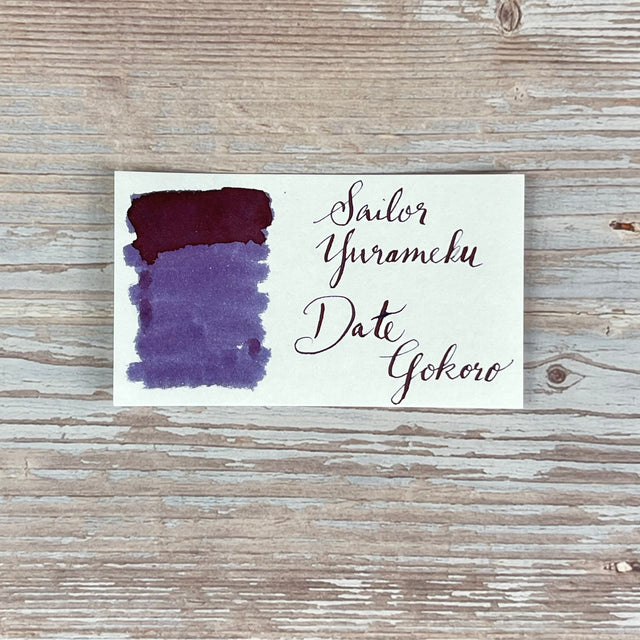 Sailor
Yurameku
Date
Gokoro